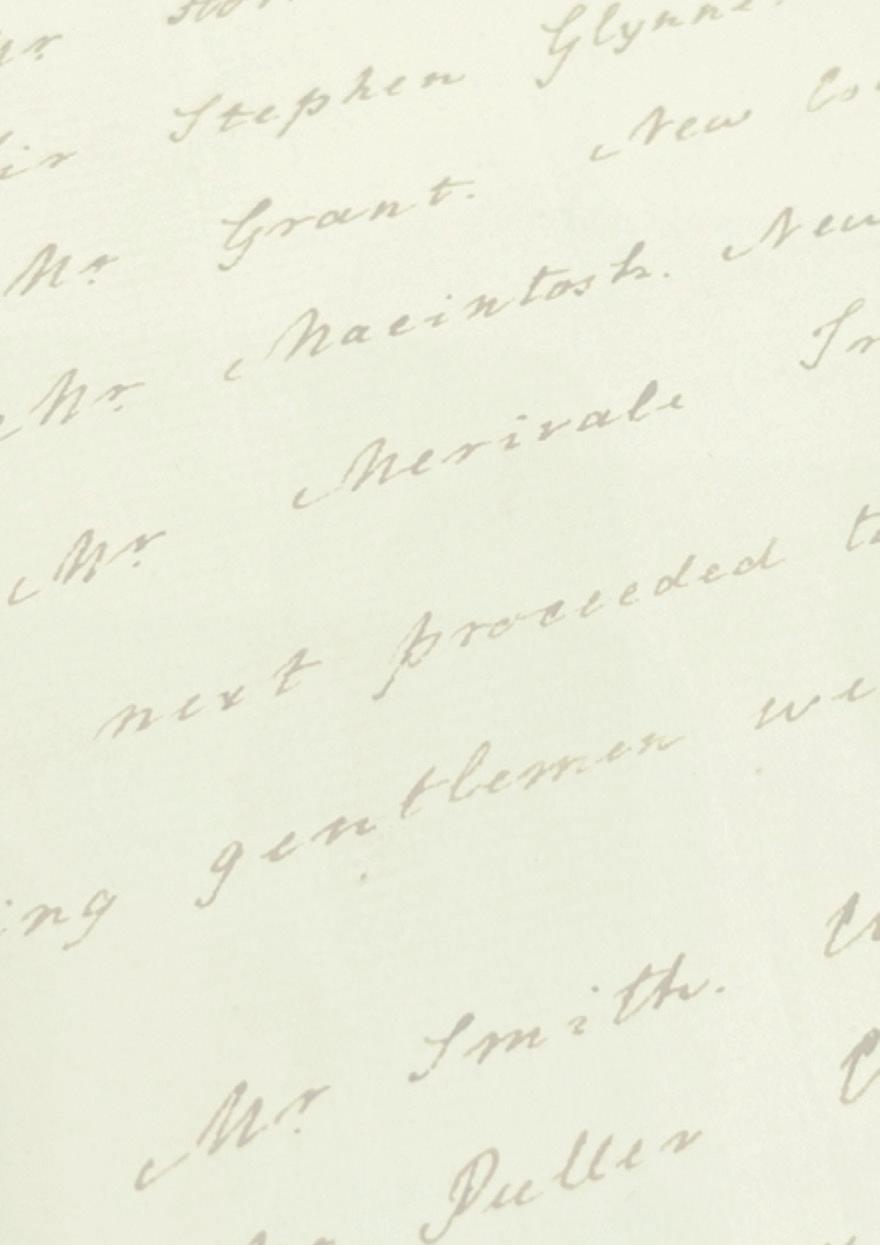 Mr
Sir Stephen Glynne.
Mr Grant. New
Mr Macintosh. New
Mr Merivale
Mr
next proceeded
ing gentlemen we
Mr Smith.
Puller